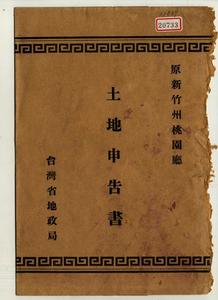 20733
原新竹州桃園廳
土地申告書
台灣省地政局